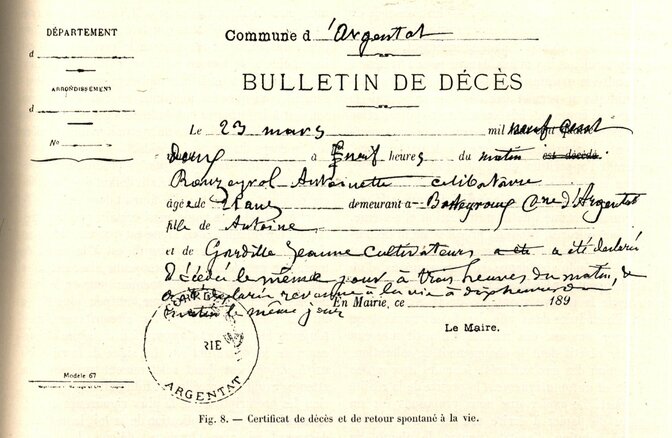 DÉPARTEMENT
d
ARRONDISSEMENT
d
No
Commune d'Argentat
BULLETIN DE DÉCÈS
Le 23 mars mil neuf cent
deux à neuf heures du matin est décédé
Antoinette célibataire
âgée de ans demeurant à Cne d'Argentat
fille de Antoine
et de Jeanne Cultivateurs a été a été déclarée
Décédée le même jour à trois heures du matin, de
revenue à la vie à dix heures du
matin le même jour
En Mairie, ce 189
Le Maire.
RIE
ARGENTAT
Modèle 67
Fig. 8. — Certificat de décès et de retour spontané à la vie.